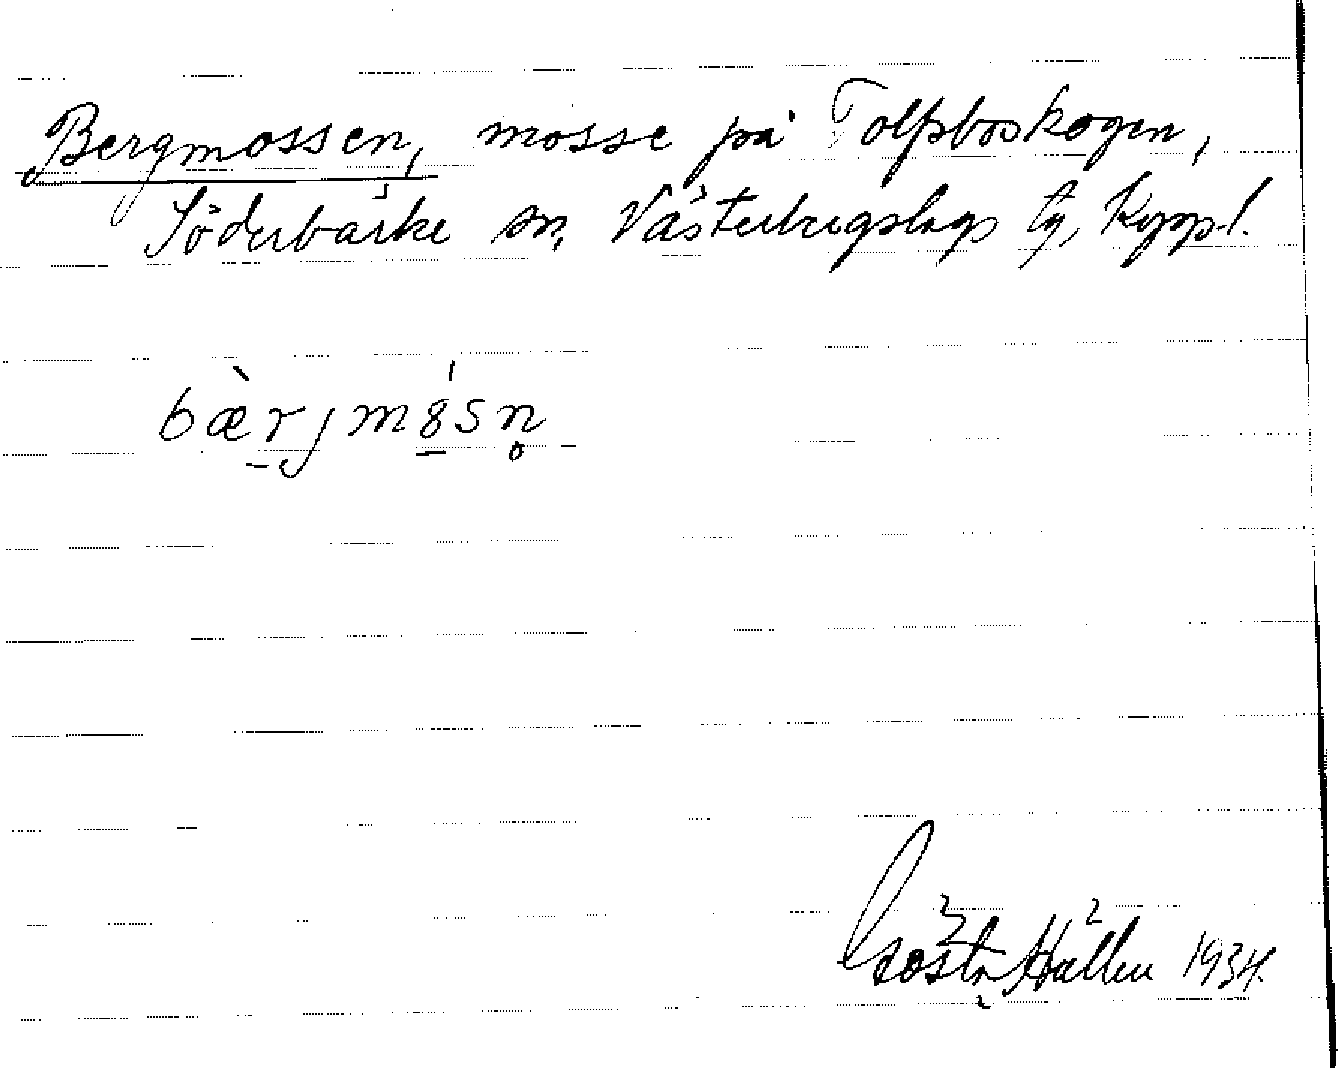 Bergmossen, mosse på Tolfsboskogen,
Söderbärke sn, Västerbergslags tg, Kopp.l.
bæ̀rjmósn̥
Gösta Hällen 1934.